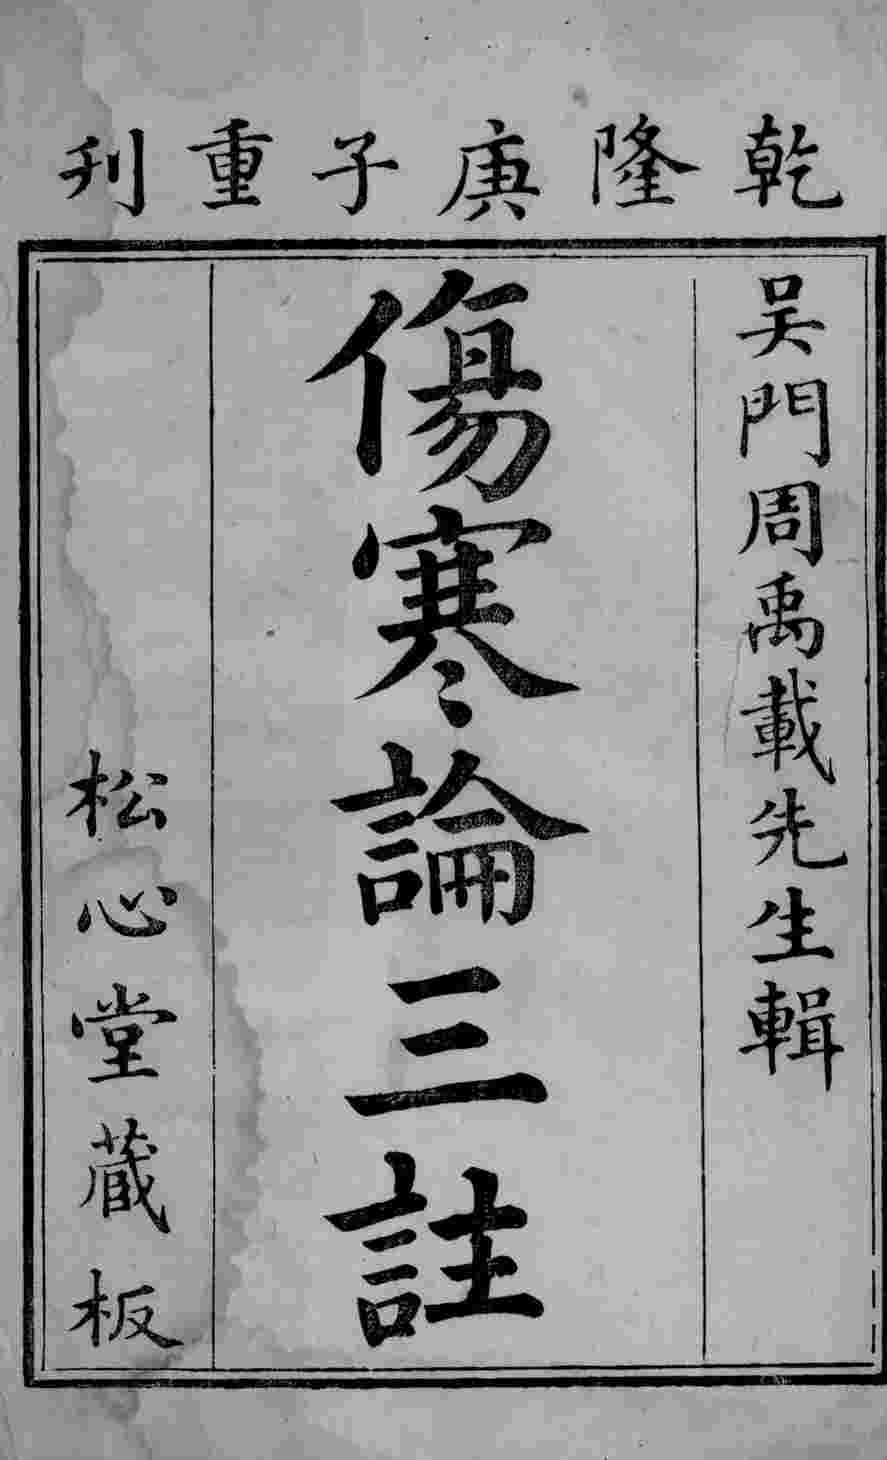 乾隆庚子重刋
吴門周禹載先生輯
傷寒論三註
松心堂蔵板